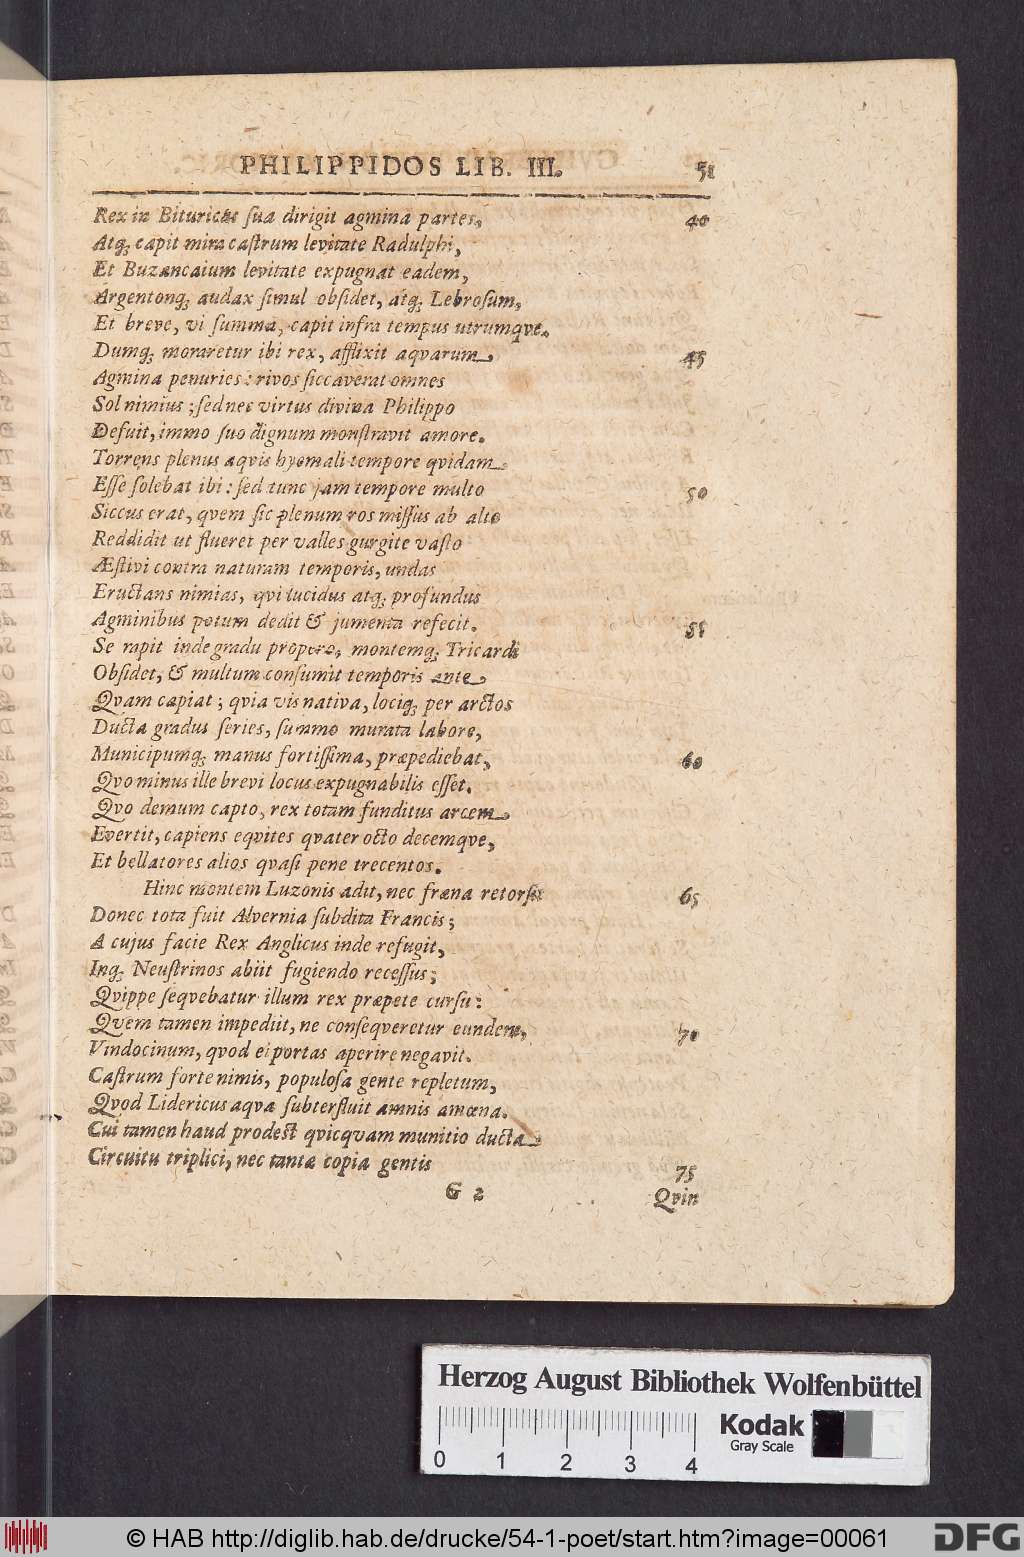 PHILIPPIDOS LIB. III. 51
Rex in Biturices sua dirigit agmina partes, 40
Atq; capit mira castrum levitate Radulphi,
Et Buzancaium levitate expugnat eadem,
Argentonq; audax simul obsidet, atq; Lebrosum,
Et breve, vi summa, capit infra tempus utrumqve.
Dumq; moraretur ibi rex, afflixit aqvarum 45
Agmina penuries: rivos siccaverat omnes
Sol nimius; sed nec virtus divina Philippo
Defuit, immo suo dignum monstravit amore.
Torrens plenus aqvis hyemali tempore qvidam
Esse solebat ibi: sed tunc jam tempore multo 50
Siccus erat, qvem sic plenum ros missus ab alto
Reddidit ut flueret per valles gurgite vasto
Æstivi contra naturam temporis, undas
Eructans nimias, qvi lucidus atq; profundus
Agminibus potum dedit & jumenta refecit. 55
Se rapit inde gradu propero, montemq; Tricardi
Obsidet, & multum consumit temporis ante
Qvam capiat; qvia vis nativa, lociq; per arctos
Ducta gradus series, summo murata labore,
Municipumq; manus fortissima, præpediebat, 60
Qvo minus ille brevi locus expugnabilis esset.
Qvo demum capto, rex totam funditus arcem
Evertit, capiens eqvites qvater octo decemqve,
Et bellatores alios qvasi pene trecentos.
Hinc montem Luzonis adit, nec fræna retorsit 65
Donec tota fuit Alvernia subdita Francis;
A cujus facie Rex Anglicus inde refugit,
Inq; Neustrinos abiit fugiendo recessus;
Qvippe seqvebatur illum rex præpete cursu:
Qvem tamen impediit, ne conseqveretur eundem, 70
Vindocinum, qvod ei portas aperire negavit.
Castrum forte nimis, populosa gente repletum,
Qvod Lidericus aqva subterfluit amnis amœna.
Cui tamen haud prodest qvicqvam munitio ducta
Circuitu triplici, nec tantæ copia gentis 75
G 2 Qvin
Herzog August Bibliothek Wolfenbüttel
Kodak
Gray Scale
0 1 2 3 4
© HAB http://diglib.hab.de/drucke/54-1-poet/start.htm?image=00061
DFG